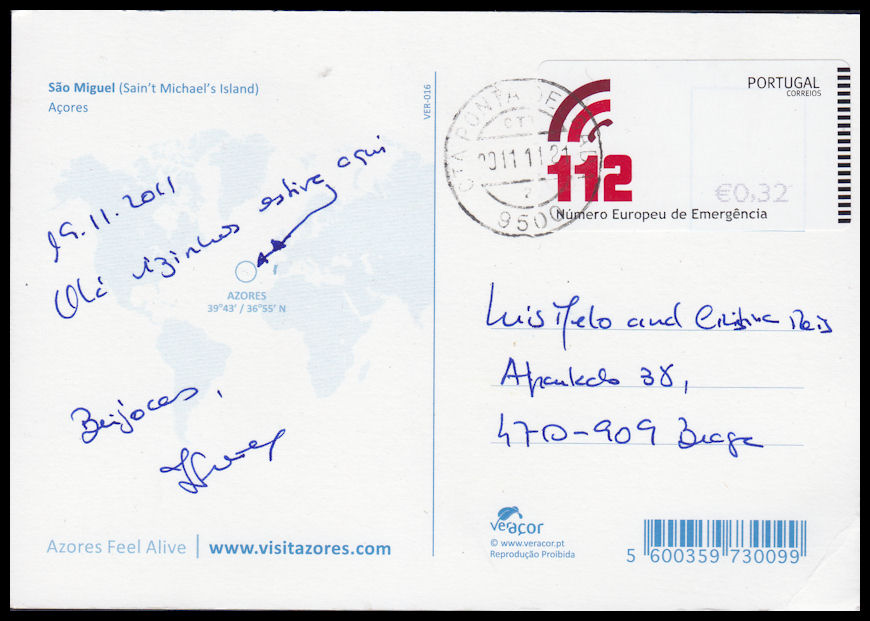 São Miguel (Sain't Michael's Island)
Açores
VER-016
19.11.2011
Olá vizinhos estive aqui
AZORES
39º43' / 36º55' N
Beijocas,
Azores Feel Alive | www.visitazores.com
PORTUGAL
CORREIOS
PONTA DE
CTT
2011 11 21
9500
112
€0,32
Número Europeu de Emergência
Luis Melo and Cristina Reis
Apartado 38,
4710-909 Braga
veraçor
© www.veracor.pt
Reprodução Proibida
5 600359 730099